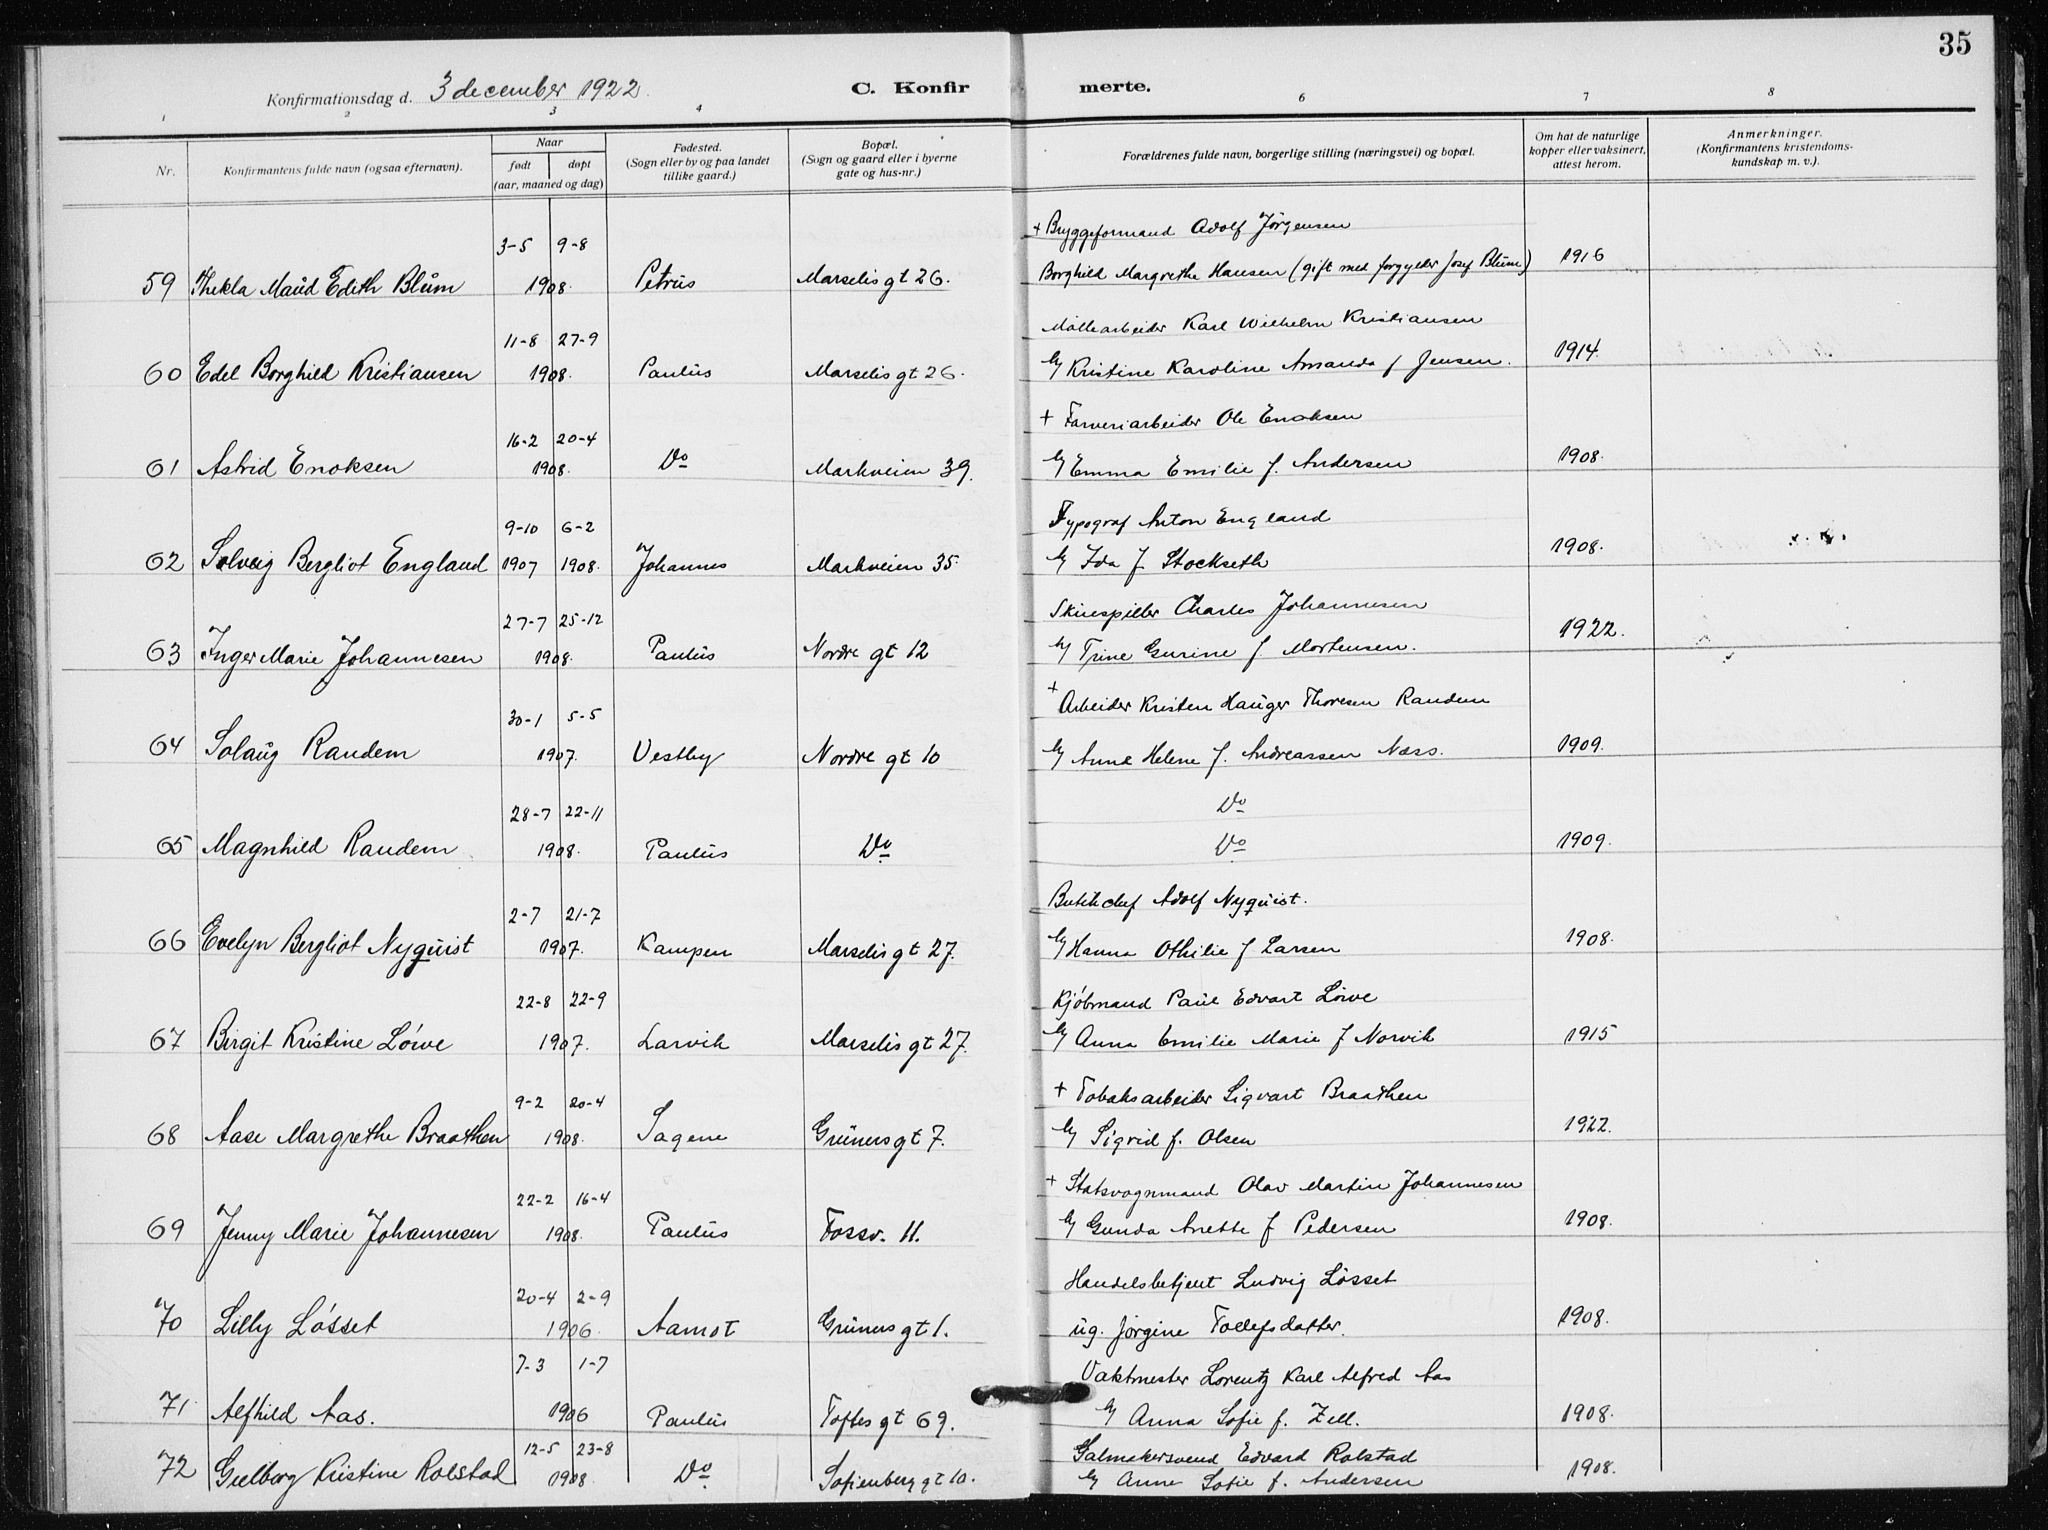 35
Konfirmationsdag d. 3 december 1922.
C. Konfirmerte.
1 2 3 4 6 7 8
Nr.
Konfirmantens fulde navn (ogsaa efternavn).
Naar
født døpt
(aar, maaned og dag)
Fødested.
(Sogn eller by og paa landet
tillike gaard.)
Bopæl.
(Sogn og gaard eller i byerne
gate og hus-nr.)
Forældrenes fulde navn, borgerlige stilling (næringsvei) og bopæl.
Om hat de naturlige
kopper eller vaksinert,
attest herom.
Anmerkninger.
(Konfirmantens kristendoms-
kundskap m. v.).
3-5 9-8 + Bryggeformand Adolf Jørgensen
59 Thekla Maud Edith Blum 1908. Petrus Marselis gt 26. Borghild Margrethe Hansen (gift med forgylder Josef Blum) 1916
11-8 27-9 Møllearbeider Karl Wilhelm Kristiansen
60 Edel Borghild Kristiansen 1908. Paulus Marselis gt 26. Kristine Karoline Amanda f Jensen. 1914.
16-2 20-4 + Farveriarbeider Ole Enoksen
61 Astrid Enoksen 1908. Do Markveien 39. Emma Emilie f. Andersen 1908.
9-10 6-2 Typograf Anton England
62 Solveig Bergliot England 1907 1908. Johannes Markveien 35. Ida f. Stockseth 1908.
27-7 25-12 Skuespiller Charles Johannesen
63 Inger Marie Johannesen 1908. Paulus Nordre gt 12 Trine Gurine f. Mortensen. 1922.
30-1 5-5 + Arbeider Kristen Hauger Thoresen Randem
64 Solaug Randem 1907. Vestby Nordre gt 10 Anne Helene f. Andreassen Næss. 1909.
28-7 22-11 Do
65 Magnhild Randem 1908. Paulus Do Do 1909.
2-7 21-7 Butikchef Adolf Nyquist.
66 Evelyn Bergliot Nyquist 1907. Kampen Marselis gt 27. Hanna Othilie f Larsen 1908.
22-8 22-9 Kjøbmand Paul Edvart Löwe
67 Birgit Kristine Löwe 1907. Larvik Marselis gt 27. Anna Emilie Marie f Norvik 1915
9-2 20-4 + Tobaksarbeider Sigvart Braathen
68 Aase Margrethe Braathen 1908. Sagene Grüners gt 7. Sigrid f. Olsen 1922.
22-2 16-4 + Statsvognmand Olav Martin Johannesen
69 Jenny Marie Johannesen 1908. Paulus Fossv. 11. Gunda Anette f Pedersen 1908.
20-4 2-9 Handelsbetjent Ludvig Løsset
70 Lilly Løsset 1906. Aamot Grüners gt 1. ug. Jørgine Tollefsdatter. 1908.
7-3 1-7 Vaktmester Lorentz Karl Alfred Aas
71 Alfhild Aas. 1906 Paulus Toftes gt 69. Anna Sofie f. Zell. 1908.
12-5 23-8 Salmakersvend Edvard Rolstad
72 Gulborg Kristine Rolstad 1908. Do Sofienberg gt 10. Anne Sofie f. Andersen 1908.